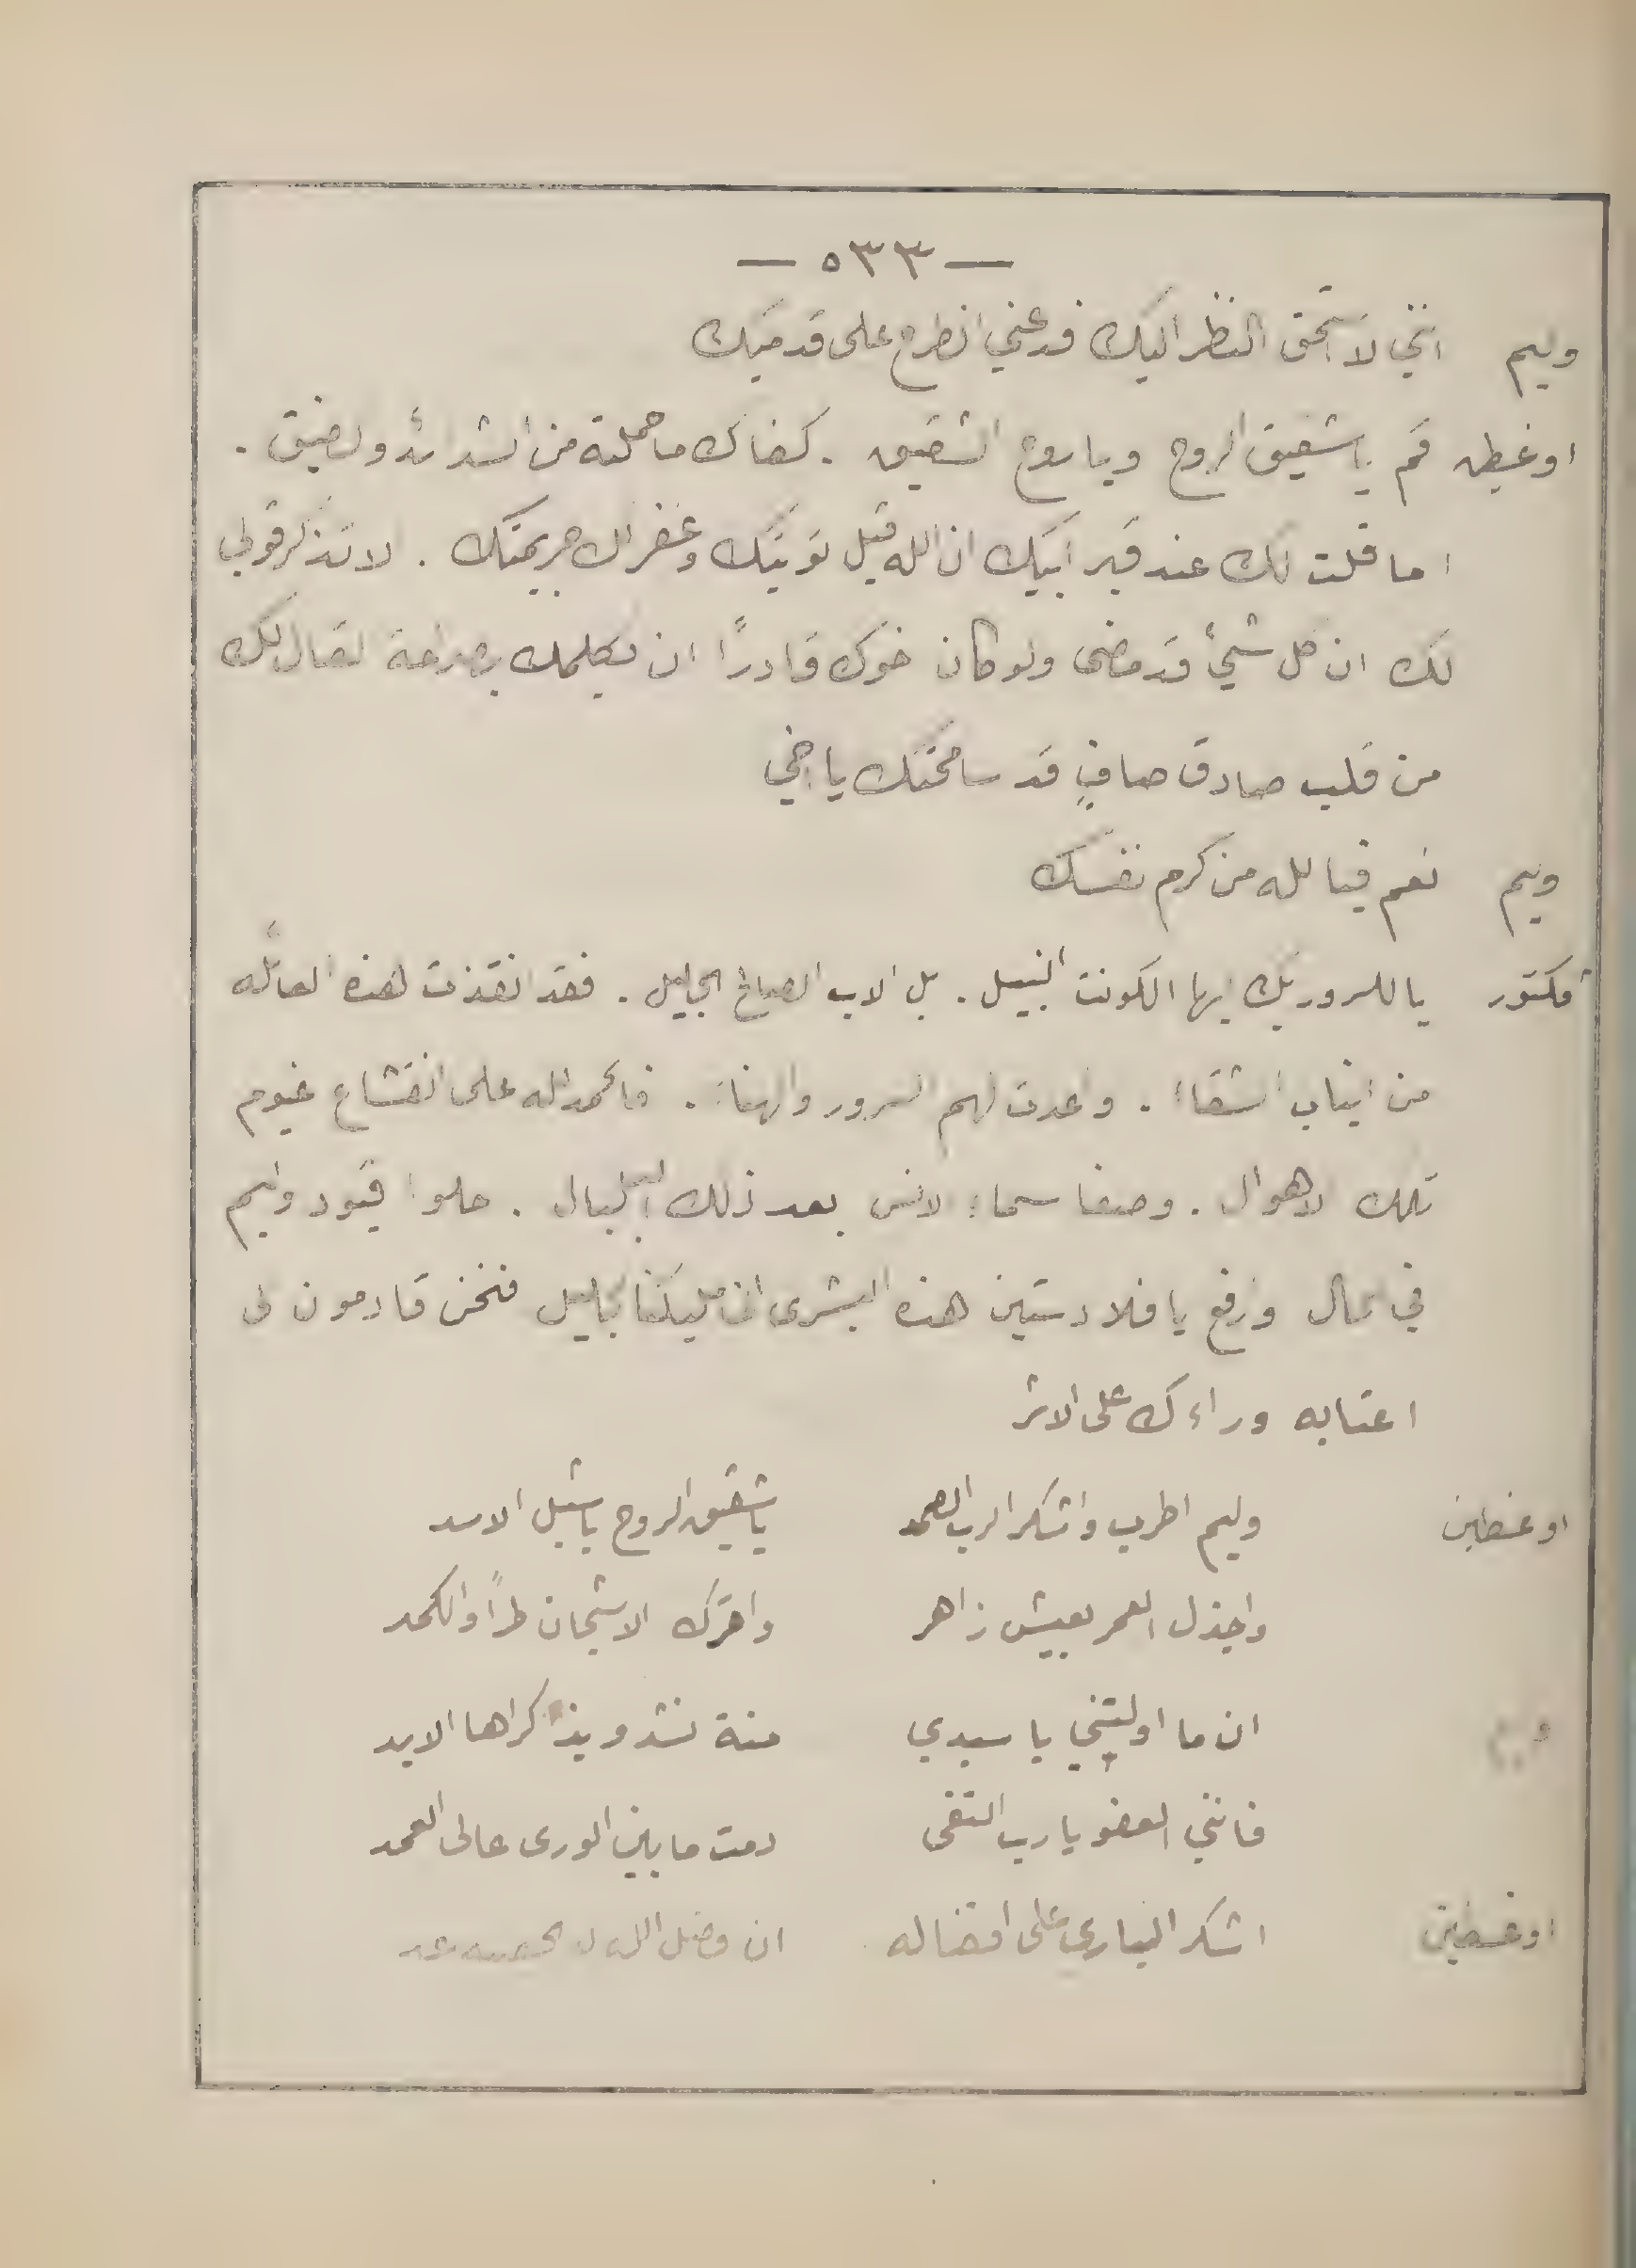 — ٥٣٣ —
وليم انني لا استحق النظر اليك فدعني انطرح على قدميك
اوغسطين قم يا شقيق الروح ويا روح الشقيق . كفاك ما حملته من الشدائد والضيق .
اما قلت لك عند قبر ابيك ان الله قبل توبتك وغفر لك جريمتك . الا تذكر قولي
لك ان كل شيء قد مضى ولو كان اخوك قادرًا ان يكلمك بصراحة لقال لك
من قلب صادق صافٍ قد سامحتك يا اخي
وليم نعم فيا لله من كرم نفسك
فكتور يا للسرور بك ايها الكونت النبيل . بل الاب الصالح الجليل . فقد انقذت هذه العائله
من انياب الشقاء . واعدت لهم السرور والهناء . فالحمد لله على انقشاع غيوم
تلك الاهوال . وصفا سماء الانس بعد ذلك البلبال . حلوا قيود وليم
في الحال وارفع يا فلادستين هذه البشرى الى مليكنا الجليل فنحن قادمون الى
اعتابه وراءك على الاثر
اوغسطين وليم اطرب واشكر الرب الصمد يا شقيق الروح يا شبل الاسد
واجذل العمر بعيش زاهر واترك الاشجان طراً والكمد
وليم ان ما اوليتني يا سيدي منة نشدو بذكراها الابد
فانني العفو يا رب التقى دمت ما بين الورى عالى العمد
اوغسطين اشكر البارى على افضاله ان فضل الله لا يحصيه عد